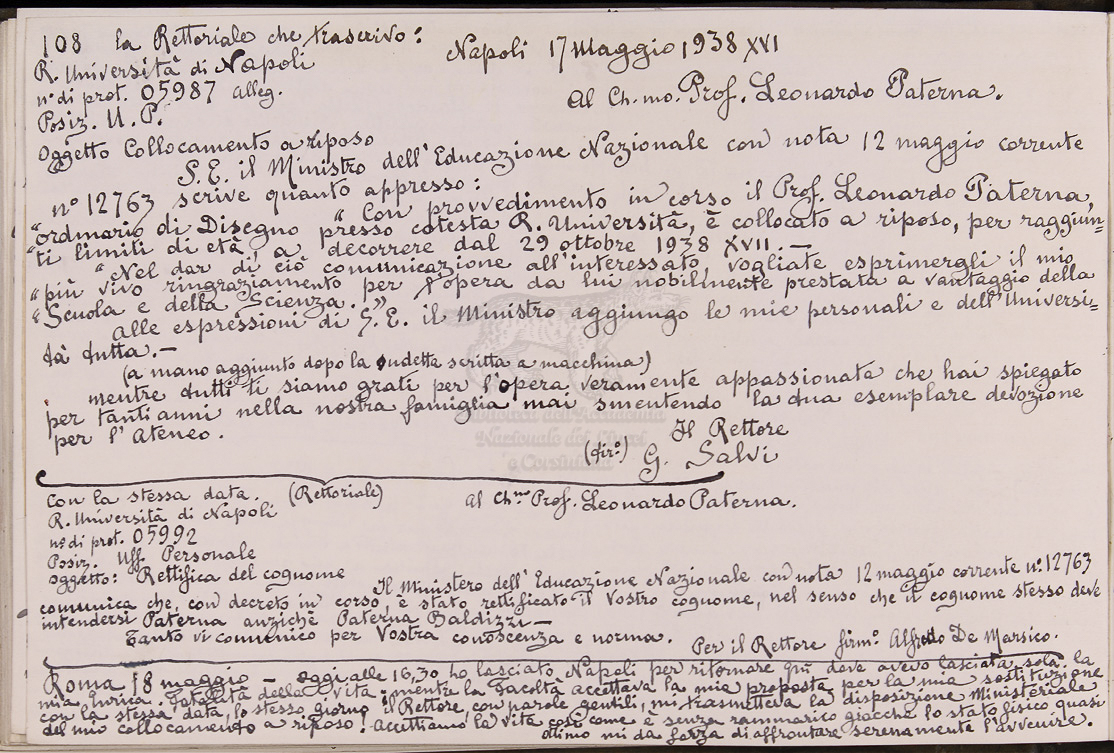 108 la Rettoriale che trascrivo:
Napoli 17 Maggio 1938 XVI
R. Università di Napoli
n° di prot. 05987 Alleg.
Al Ch.mo. Prof. Leonardo Paterna.
Posiz. U. P.
Oggetto Collocamento a riposo
S.E. il Ministro dell'Educazione Nazionale con nota 12 maggio corrente
n° 12763 scrive quanto appresso:
"Con provvedimento in corso il Prof. Leonardo Paterna,
"ordinario di Disegno presso cotesta R. Università, è collocato a riposo, per raggiun=
"ti limiti di età, a decorrere dal 29 ottobre 1938 XVII.—
"Nel dar di ciò comunicazione all'interessato, vogliate esprimergli il mio
"più vivo ringraziamento per l'opera da lui nobilmente prestata a vantaggio della
"Scuola e della Scienza."
Alle espressioni di S.E. il Ministro aggiungo le mie personali e dell'Universi=
tà tutta.—
(a mano aggiunto dopo la sudetta scritta a macchina)
mentre tutti ti siamo grati per l'opera veramente appassionata che hai spiegato
per tanti anni nella nostra famiglia mai smentendo la tua esemplare devozione
per l'Ateneo.
Il Rettore
(fir°.) G. Salvi
Con la stessa data. (Rettoriale)
Al Ch.mo Prof. Leonardo Paterna.
R. Università di Napoli
n° di prot. 05992
Posiz. Uff. Personale
Oggetto: Rettifica del cognome
Il Ministero dell'Educazione Nazionale con nota 12 maggio corrente n°. 12763
comunica che, con decreto in corso, è stato rettificato il Vostro cognome, nel senso che il cognome stesso deve
intendersi Paterna anziché Paterna Baldizzi—
Tanto vi comunico per Vostra conoscenza e norma.
Per il Rettore firm°. Alfredo De Marsico.
Roma 18 maggio — Oggi alle 16,30 ho lasciato Napoli per ritornare qui dove avevo lasciata sola la
mia Enrica. Fatalità della vita: mentre la Facoltà accettava la mia proposta per la mia sostituzione
con la stessa data, lo stesso giorno il Rettore, con parole gentili, mi trasmetteva la disposizione Ministeriale
del mio collocamento a riposo! Accettiamo la vita così come è senza rammarico giacché lo stato fisico quasi
ottimo mi da forza di affrontare serenamente l'avvenire.
Biblioteca dell'Accademia
Nazionale dei Lincei
e Corsiniana